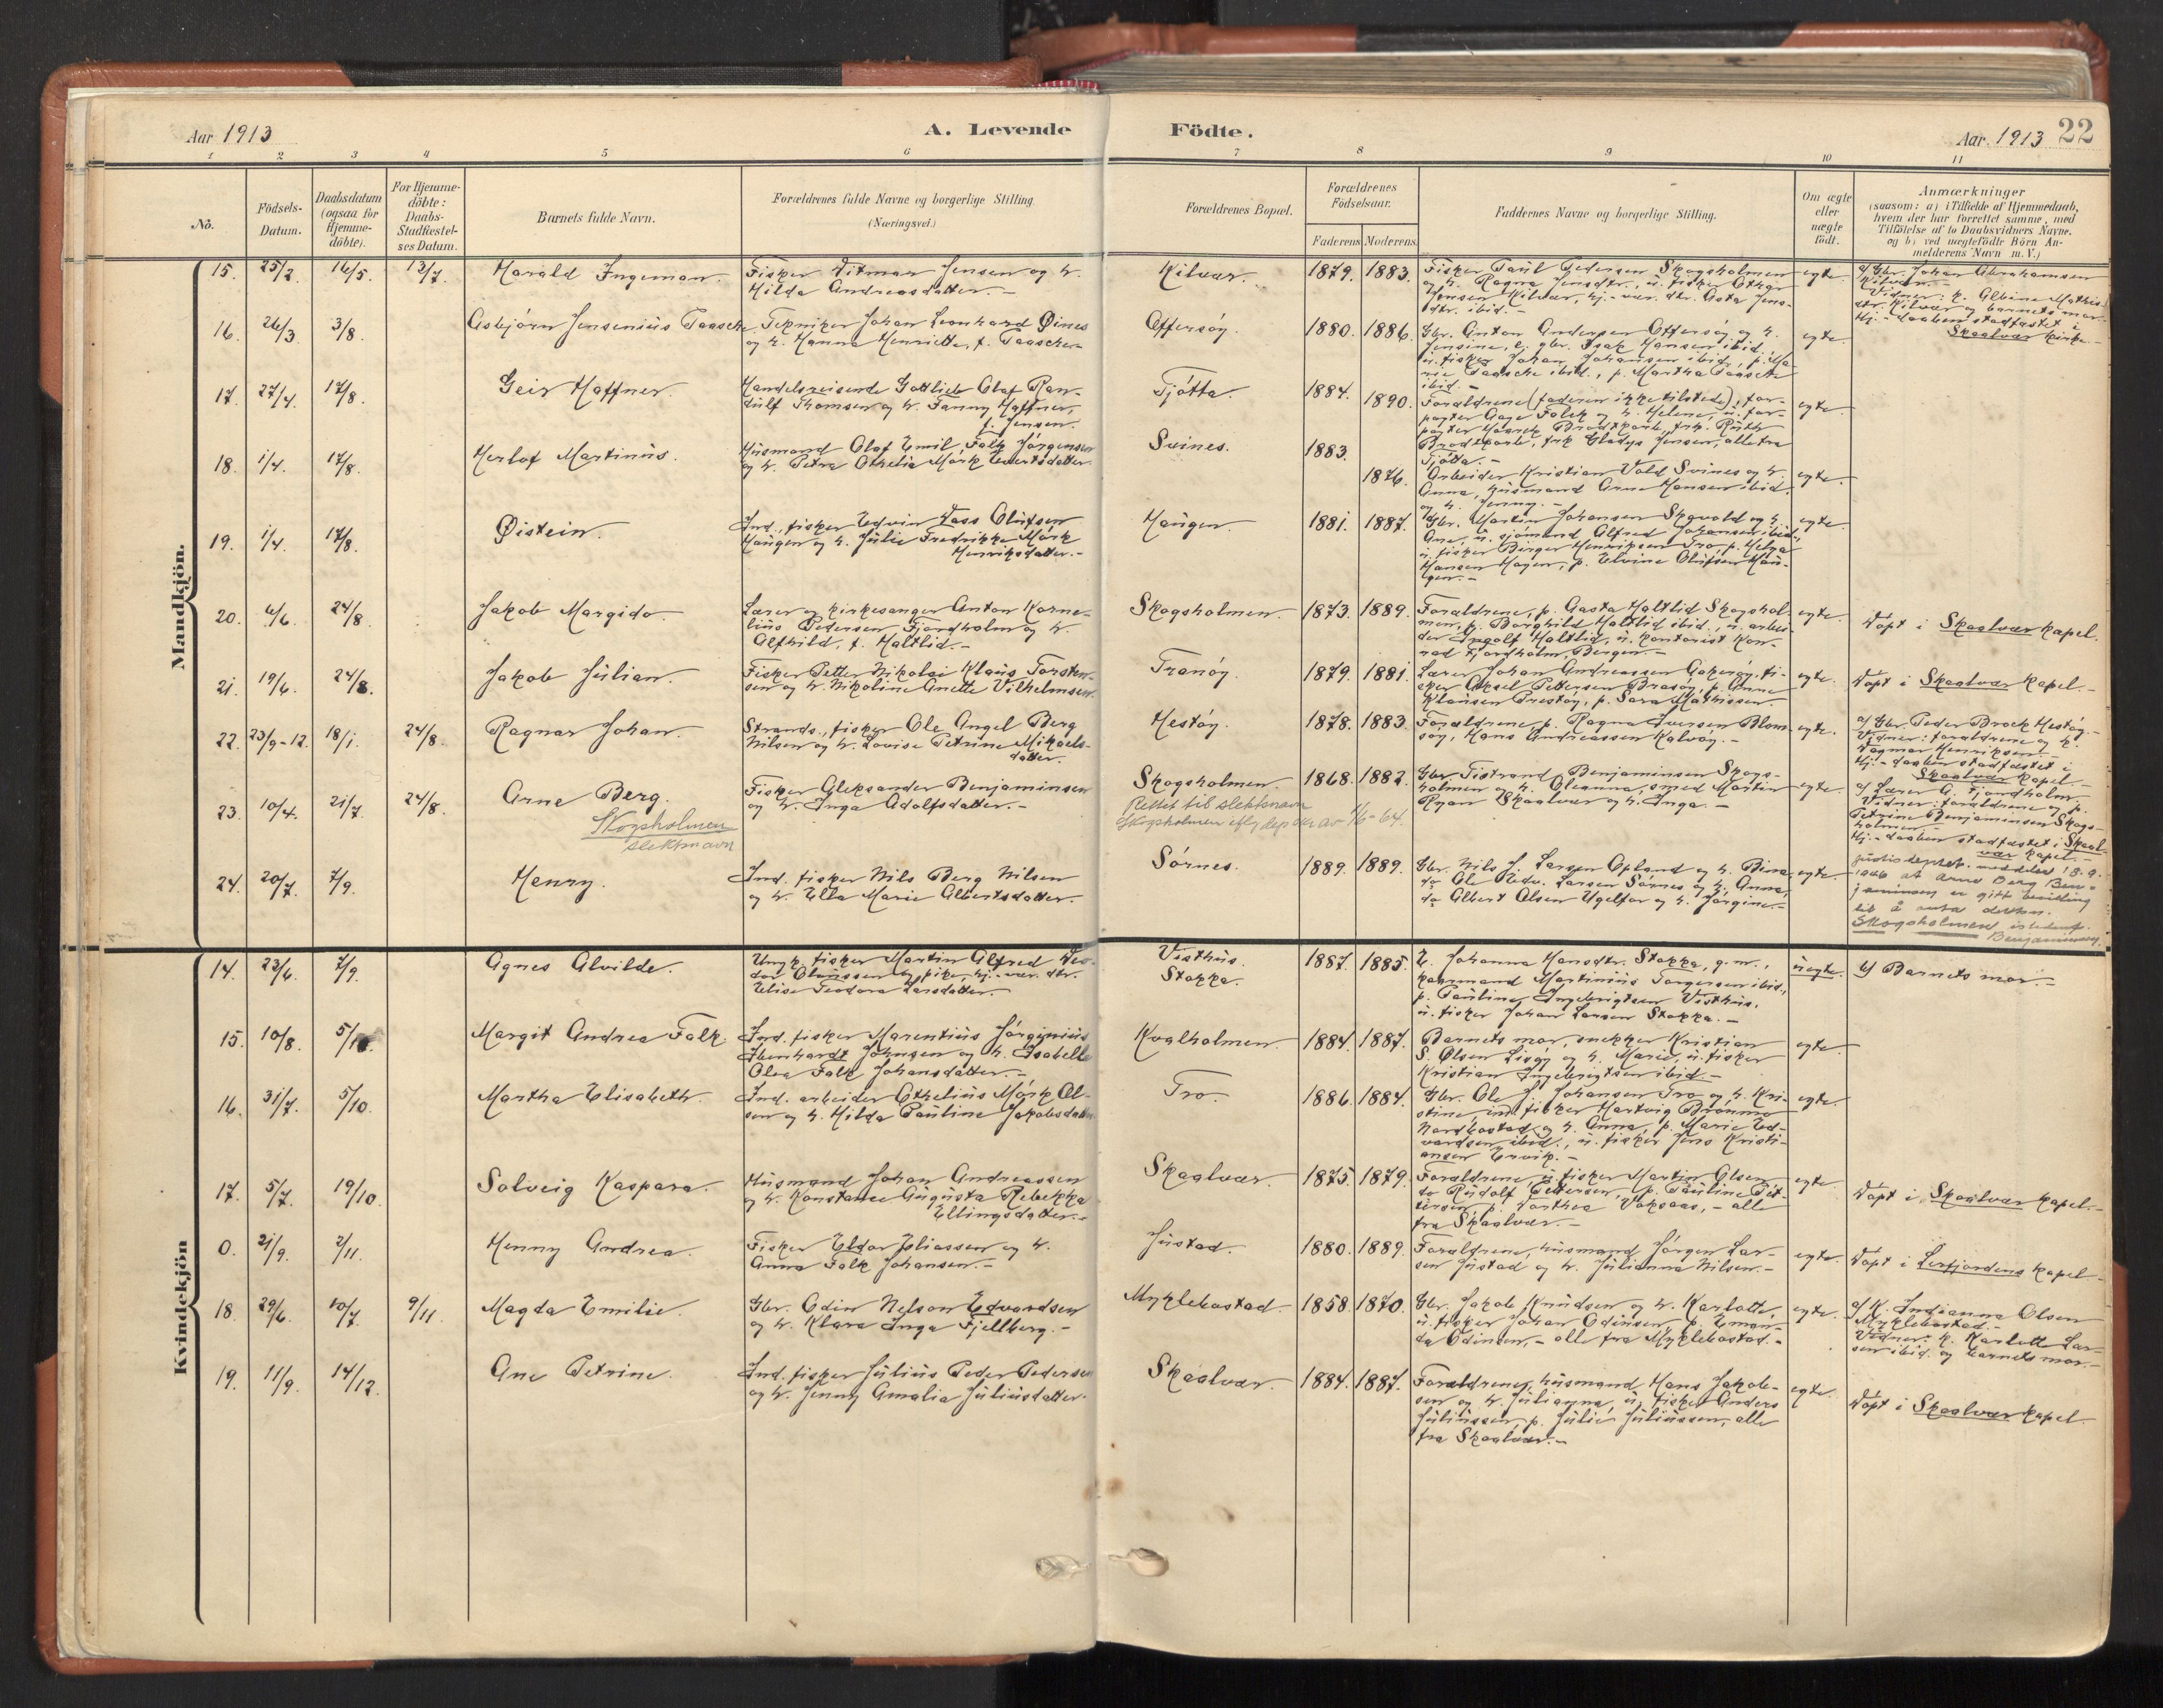 Aar 1913
A. Levende Födte.
Aar 1913
22
1 2 3 4 5 6 7 8 9 10 11
No.
Födsels-
Datum.
Daabsdatum
(ogsaa for
Hjemme-
döbte).
For Hjemme-
döbte:
Daabs-
Stadfæstel-
ses Datum.
Barnets fulde Navn.
Forældrenes fulde Navne og borgerlige Stilling
(Næringsvei.)
Forældrenes Bopæl.
Forældrenes
Födselsaar.
Faderens Moderens
Faddernes Navne og borgerlige Stilling.
Om ægte
eller
uægte
födt.
Anmærkninger
(saasom: a) i Tilfælde af Hjemmedaab,
hvem der har forrettet samme, med
Tilföielse af to Daabsvidners Navne.
og b) ved uægtefödte Börn An-
melderens Navn m. V.)
Mandkjön.
15. 25/2 16/5. 13/7. Harald Ingeman.
Fisker Ditmar Jensen og h.
Hilda Andreasdatter.-
Kilvær. 1879. 1883.
Fisker Paul Pedersen Skogsholmen
og h. Ragna Jensdtr., u. fisker Othar
Jensen Kilvær, hj.-vær. dtr. Asta Jens-
dtr. ibid.-
egte.
a/ Gbr. Johan Abrahamsen
Kilvær.-
Vidner: k. Albine Mathis-
dtr. Kilvær og barnets mor.
Hj.-daaben stadfæstet i
Skaalvær kirke.-
16. 26/3 3/8. Asbjörn Jensenius Taasche
Tekniker Johan Leonhard Øines
og h. Hanna Henriette, f. Taasche.-
Offersøy. 1880. 1886.
Gbr. Anton Andersen Offersøy og h.
Jensine, e. gbr. Isak Hansen ibid.
u. fisker Johan Johansen ibid, p. Ma-
rie Taasche ibid., p. Martha Taasche
ibid.-
egte.
17. 27/4. 17/8. Geir Haffner.
Handelsreisende Gottlieb Olaf Ran-
dulf Thomsen og h. Fanny Haffner,
f. Jensen.
Tjøtta. 1884. 1890.
Forældrene (faderen ikke tilstede), for-
pagter Aage Falck og h. Helene, u. for-
pagter Haarek Brodtkorb, frk. Ruth
Brodtkorb, frk Gladys Jensen, alle fra
Tjøtta.-
egte.
18. 1/4. 17/8. Herlof Martinus.
Husmand Olaf Emil Falk Jørgensen
og h. Petra Othelia Mørk Evertsdatter.
Svines. 1883. 1876.
Arbeider Kristian Vold Svines og h.
Anna, husmand Arne Hansen ibid.
og h. Jenny.-
egte.
19. 1/4. 17/8. Øistein.
Ind., fisker Edvin Dass Olufsen
Haugen og h. Julie Fredrikke Mørk
Henriksdatter.-
Haugen. 1881. 1887.
Gbr. Martin Johansen Skavold og h.
Ane, u. sjømand Alfred Johansen ibid.,
u. fisker Birger Henriksen Tro, p. Helga
Hansen Hagen, p. Elvine Olufsen Hau-
gen.-
egte.
20. 6/6. 24/8. Jakob Margido.
Lærer og kirkesanger Anton Korne-
lius Pedersen Fjordholm og h.
Alfhild, f. Haltlid.-
Skogsholmen. 1873. 1889.
Forældrene, p. Gasta Haltlid Skogshol-
men, p. Borghild Haltlid ibid., u. arbei-
der Ingolf Haltlid, u. kontorist Kon-
rad Fjordholm, Bergen.-
egte.
Døpt i Skaalvær kapel.
21. 19/6. 24/8. Jakob Julian.
Fisker Petter Nikolai Klaus Torsten-
sen og h. Nikoline Anette Vilhelmsen.
Tranøy. 1879. 1881.
Lærer Johan Andreassen Gåkerøy, fi-
sker Aksel Pettersen Brasøy, p. Anna
Klausen Prestøy, p. Sara Mathissen.
egte.
Døpt i Skaalvær kapel.-
22. 23/9-12. 18/1. 24/8. Ragnar Johan.
Strands., fisker Ole Angel Berg
Nilsen og h. Lovise Petrine Mikaels-
datter.
Hestøy. 1878. 1883.
Forældrene, p. Ragna Iversen Blom-
søy, Hans Andreassen Kalvøy.-
egte.
a/ Gbr. Peder Brock Hestøy.-
Vidner: forældrene og k.
Dagmar Henriksen.-
Hj.-daaben stadfæstet i
Skaalvær kapel.-
23. 10/4. 21/7. 24/8. Arne Berg.
Skogsholmen
slektnavn
Fisker Aleksander Benjaminsen
og h. Inga Adolfsdatter.-
Skogsholmen. 1868. 1882.
Rettet til slektsnavn
Skogsholmen iflg dep skr av 1/6-64.
Gbr. Tistrand Benjaminsen Skogs-
holmen og h. Oleanna, smed Martin
Ryan Skaalvær og h. Inga.-
egte.
a/ Lærer A. Fjordholm
Vidner: forældrene og p.
Petrine Benjaminsen Skogs-
holmen.-
Hj.-daaben stadfæstet i Skaal-
vær kapel.-
Justisdeptet. meddelte 18.9.
1946 at Arne Berg Ben-
jaminsen er gitt bevilling
til å anta slektsn.
Skogsholmen istedenf.
Benjaminsen.
24. 20/7. 7/9. Henry.
Ind. fisker Nils Berg Nilsen
og h. Ella Marie Albertsdatter.
Sørnes. 1889. 1889.
Gbr. Nils J. Larsen Opland og h. Bina
do Ole Edv. Larsen Sørnes og h. Anna
do Albert Olsen Ugelfor og h. Jørgine.-
egte.
Kvindekjön
14. 23/6. 7/9. Agnes Alvilde.
Ungk. fisker Martin Alfred Teo-
dor Olaussen og pike, hj.-vær. dtr.
Elise Teodora Larsdatter.
Visthus.
Stokka. 1887. 1885.
E. Johanna Hansdtr. Stokka, g.m.,
kaarmand Martinius Torgersen ibid.,
p. Pauline Ingebrigtsen Visthus,
u. fisker Johan Larsen Stokka.-
uegte.
b/ Barnets mor.-
15. 10/8. 5/10. Margit Andrea Falk.
Ind. fisker Marentius Jørginius
Ibenhardt Johnsen og h. Isabella
Olea Falk Johansdatter.-
Kvalholmen. 1884. 1887.
Barnets mor, snekker Kristian
S. Olsen Lisøy og h. Marie, u. fisker
Kristian Ingebrigtsen ibid.-
egte.
16. 31/7. 5/10. Martha Elisabeth.
Ind. arbeider Othelius Mørk Ol-
sen og h. Hilda Pauline Jakobsdatter
Tro. 1886. 1884.
Gbr. Ole J. Johansen Tro og h. Kri-
stine, ind. fisker Hartvig Brønmo
Nordbostad og h. Anna, p. Marie Ed-
vardsen ibid., u. fisker Jens Kristi-
ansen Ervik.-
egte.
17. 5/7. 19/10. Solveig Kaspara.
Husmand Johan Andreassen
og h. Konstance Augusta Rebekka
Ellingsdatter.-
Skaalvær. 1875. 1879.
Forældrene, u. fisker Martin Olsen,
do Rudolf Pettersen, p. Pauline Pet-
tersen, p. Dorthea Voksaas, - alle
fra Skaalvær.-
egte
Døpt i Skaalvær kapel.-
0. 21/9. 2/11. Henny Andrea.
Fisker Eldor Eliassen og h.
Anna Falk Johansen.-
Justad. 1880. 1889.
Forældrene, husmand Jørgen Lar-
sen Justad og h. Julianna Nilsen.-
egte.
Døpt i Leirfjordens kapel.-
18. 29/6. 10/7. 9/11. Magda Emilie.
Gbr. Odin Nelson Edvardsen
og h. Klara Inga Fjellberg.-
Myklebostad. 1858. 1870.
Gbr. Jakob Knudsen og h. Karlotte,
u. fisker Johan Odinsen, p. Eman-
da Odinsen, - alle fra Myklebostad.-
egte.
a/ K. Indianna Olsen
Myklebostad.-
Vidner: k. Karlott Lar-
sen ibid. og barnets mor.-
19. 11/9. 14/12. Ane Petrine.
Ind. fisker Julius Peder Pedersen
og h. Jenny Amalia Juliusdatter.
Skaalvær. 1884. 1887.
Forældrene, husmand Hans Jakob-
sen og h. Julianna, u. fisker Anders
Juliussen, p. Julie Juliussen, alle
fra Skaalvær.-
egte.
Døpt i Skaalvær kapel.